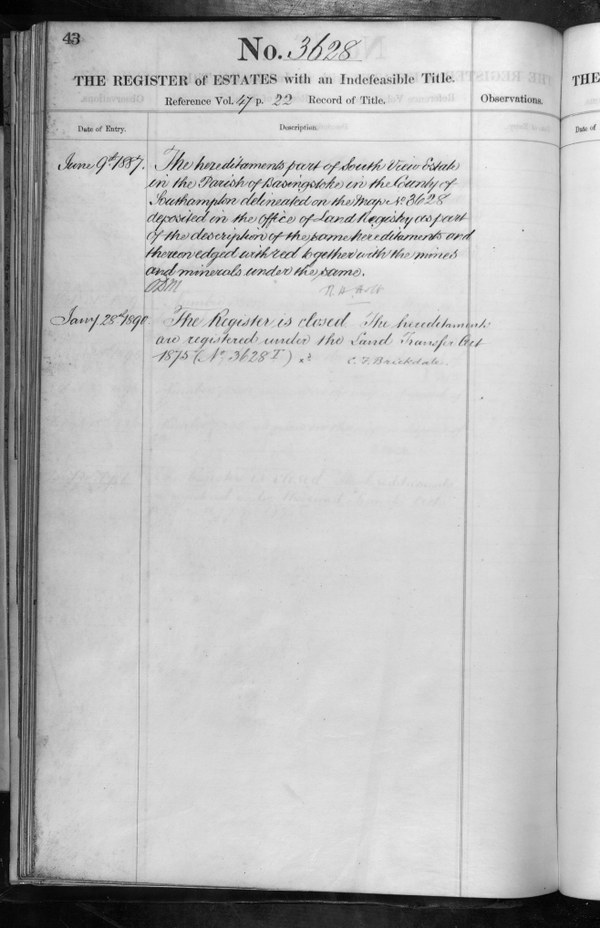 43
No. 3628
THE REGISTER of ESTATES with an Indefeasible Title.
Reference Vol. 47 p. 22 Record of Title.
Observations.
Date of Entry.
Description.
June 9th 1887.
The hereditaments part of South View Estate
in the Parish of Basingstoke in the County of
Southampton delineated on the Map No 3628
deposited in the Office of Land Registry as part
of the description of the same hereditaments and
thereon edged with red together with the mines
and minerals under the same.
R. H. Holt
Jany 28th 1898
The Register is closed The hereditaments
are registered under the Land Transfer Act
1875 (No 3628 T)
C. F. Brickdale
THE
Date of